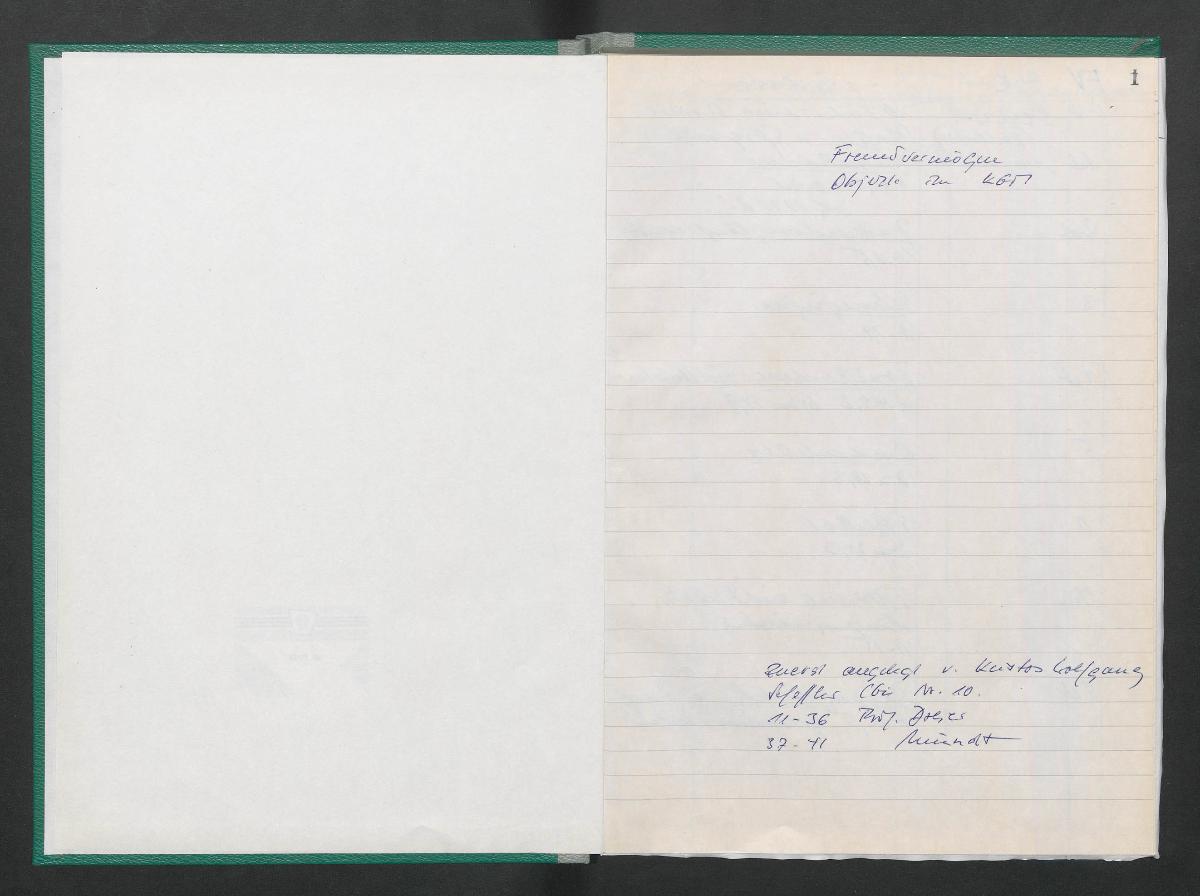 1
Fremdvermögen
Objekte im KGM
zuerst angelegt v. Kustos Wolfgang
Scheffler (bis Nr. 10.
11-36 Prof. Dreier
37-41 Mundt